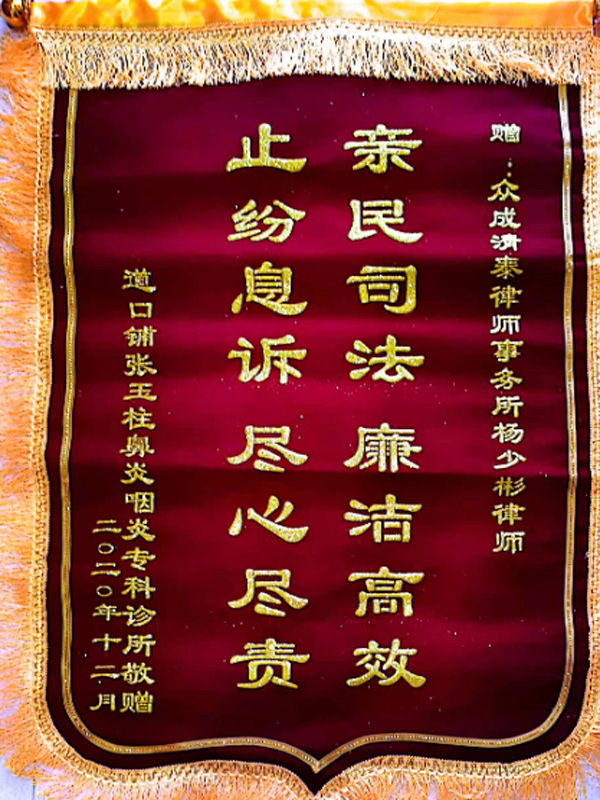 赠：众成清泰律师事务所杨少彬律师
亲民司法 廉洁高效
止纷息诉 尽心尽责
道口铺张玉柱鼻炎咽炎专科诊所敬赠
二〇二〇年十二月